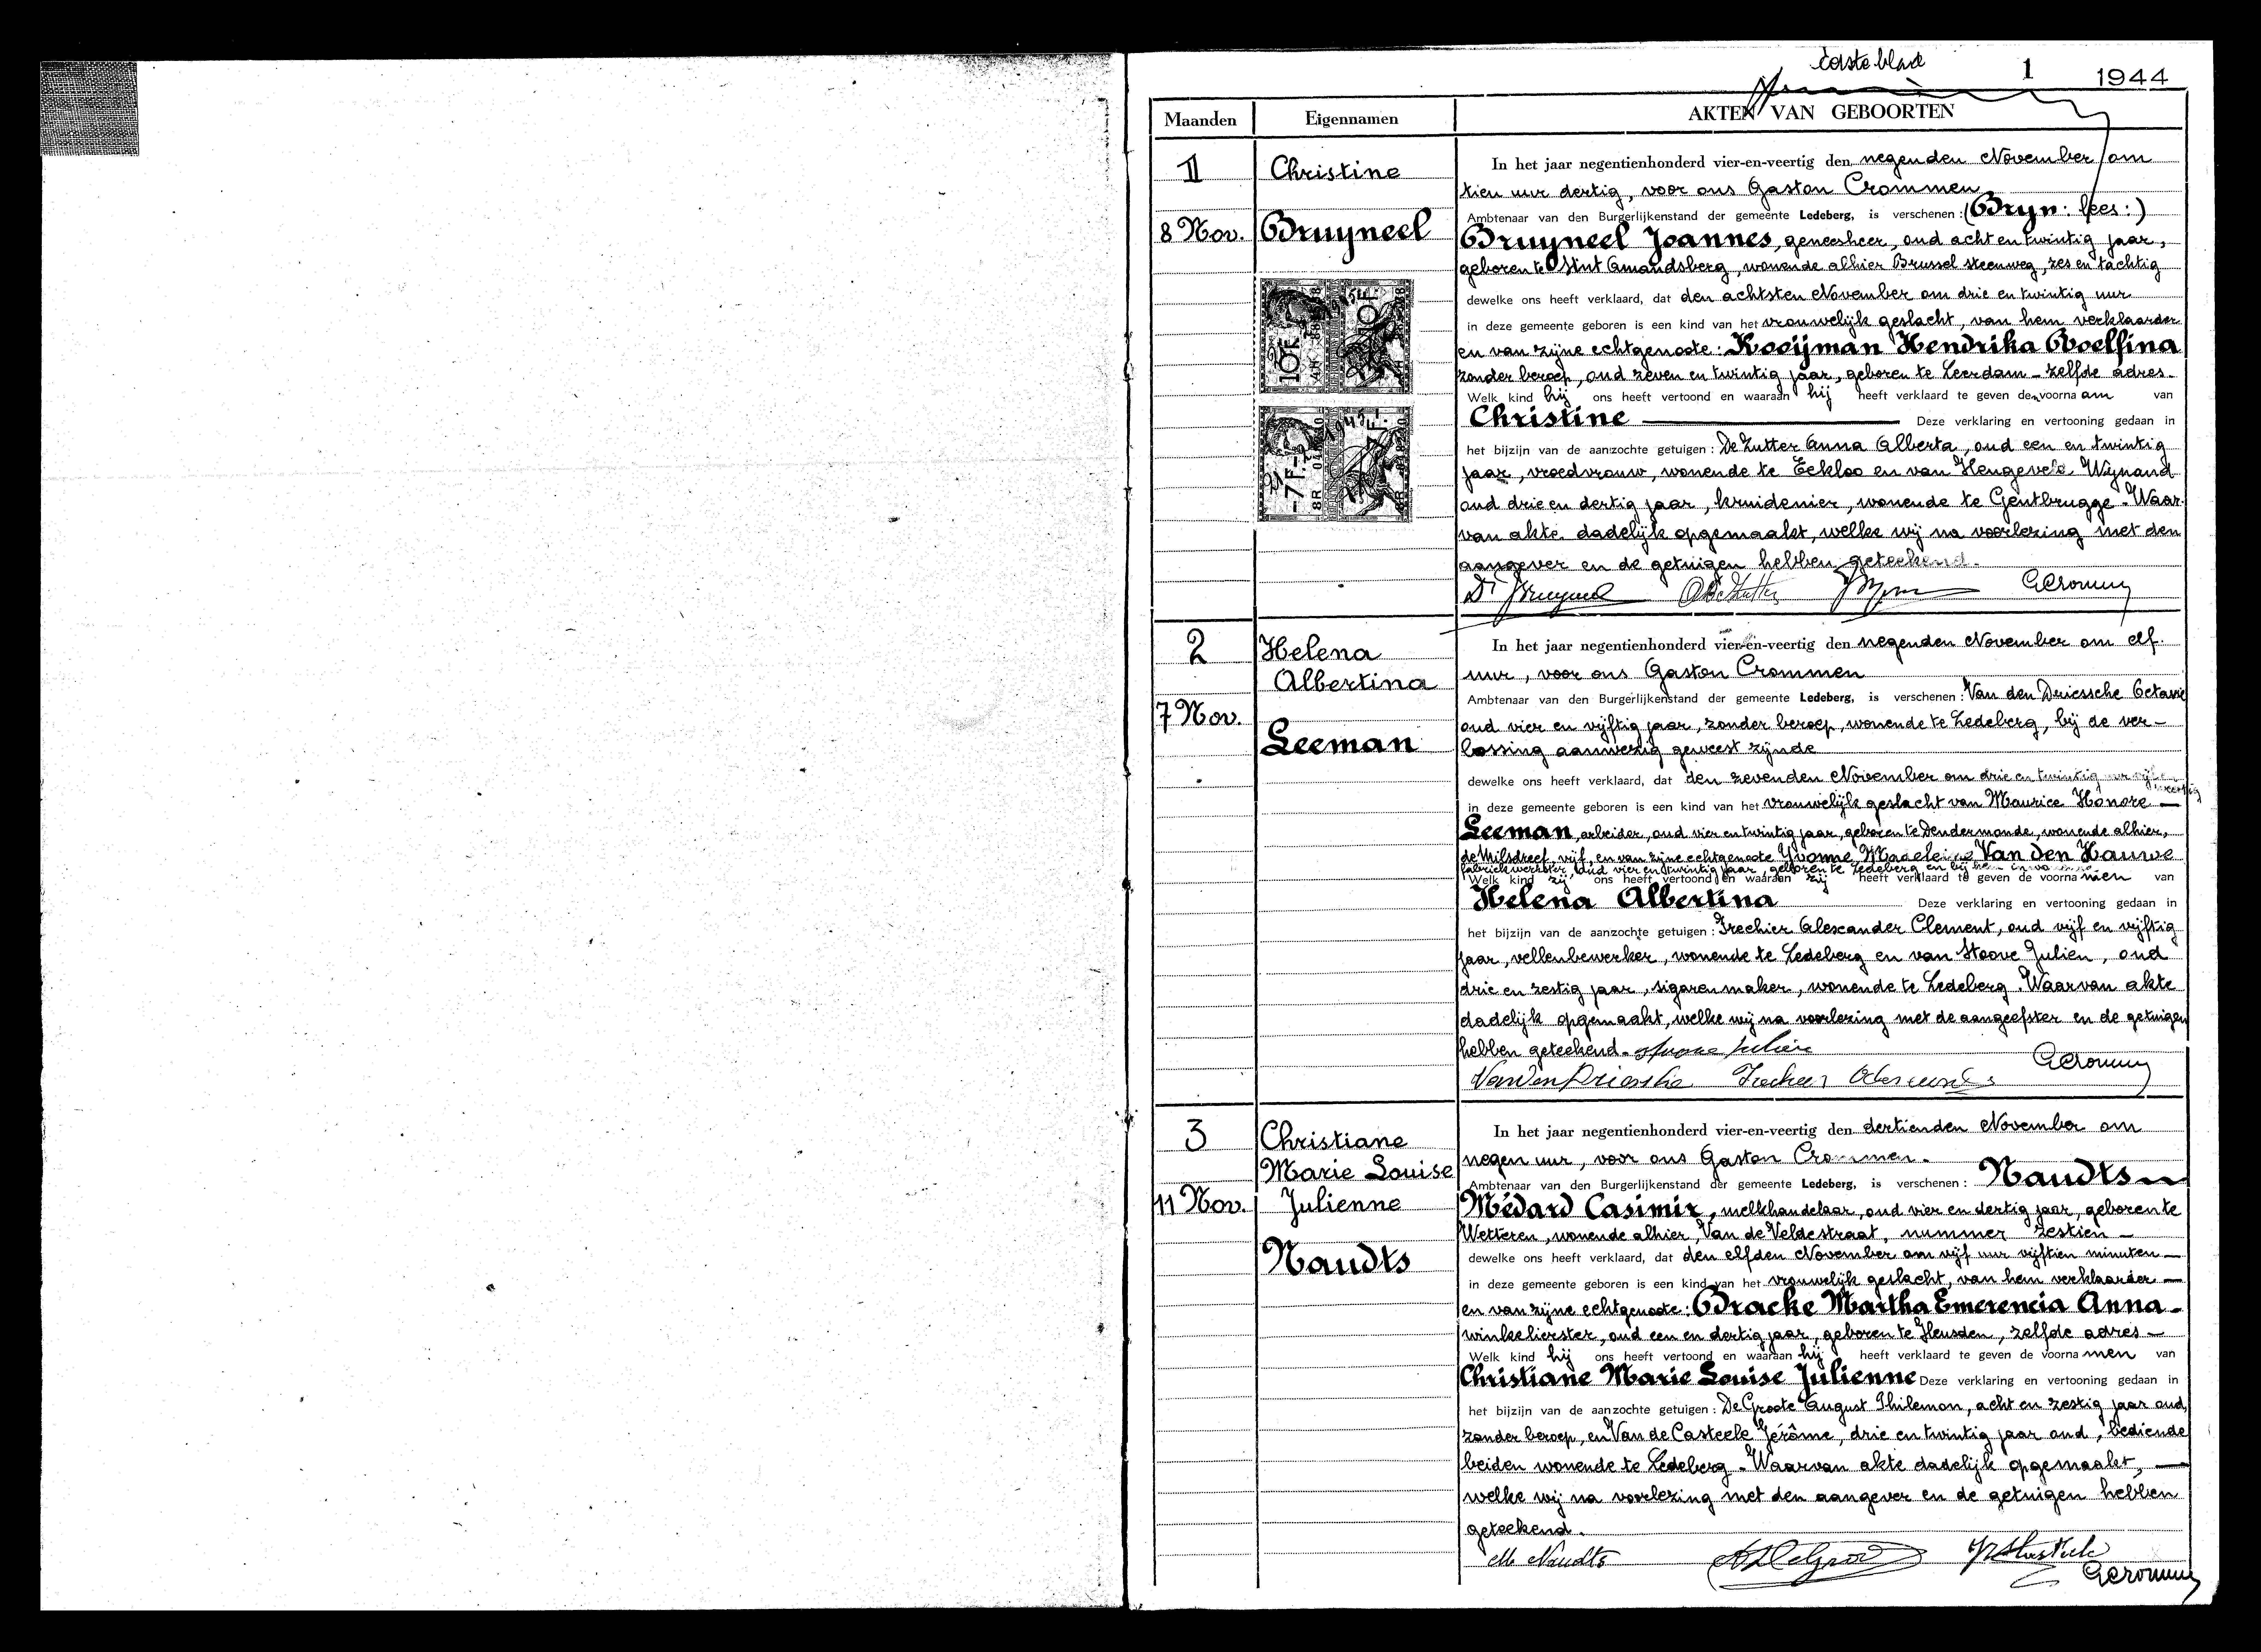 Eerste blad
1 1944
Maanden Eigennamen AKTEN VAN GEBOORTEN
1
8 Nov.
Christine
Bruyneel
10F
10F
1945
7F
7F
1945
In het jaar negentienhonderd vier-en-veertig den negenden November om
tien uur dertig, voor ons Gaston Crommen
Ambtenaar van den Burgerlijkenstand der gemeente Ledeberg, is verschenen: (Bryn: lees:)
Bruyneel Joannes, geneesheer, oud acht en twintig jaar,
geboren te Sint Amandsberg, wonende alhier Brussel steenweg, zes en tachtig
dewelke ons heeft verklaard, dat den achtsten November om drie en twintig uur
in deze gemeente geboren is een kind van het vrouwelijk geslacht, van hem verklaarder
en van zijne echtgenoote: Kooijman Hendrika Roelfina
zonder beroep, oud zeven en twintig jaar, geboren te Leerdam - zelfde adres -
Welk kind hij ons heeft vertoond en waaraan hij heeft verklaard te geven den voornaam van
Christine — Deze verklaring en vertooning gedaan in
het bijzijn van de aanzochte getuigen: De Zutter Anna Alberta, oud een en twintig
jaar, vroedvrouw, wonende te Eekloo en van Hengeveld Wijnand
oud drie en dertig jaar, kruidenier, wonende te Gentbrugge. Waar-
van akte dadelijk opgemaakt, welke wij na voorlezing met den
aangever en de getuigen hebben geteekend.
Dr Bruyneel A De Zutter GCrommen
2
7 Nov.
Helena
Albertina
Leeman
In het jaar negentienhonderd vier-en-veertig den negenden November om elf
uur, voor ons Gaston Crommen
Ambtenaar van den Burgerlijkenstand der gemeente Ledeberg, is verschenen: Van den Driessche Octavie
oud vier en vijftig jaar, zonder beroep, wonende te Ledeberg, bij de ver-
lossing aanwezig geweest zijnde
dewelke ons heeft verklaard, dat den zevenden November om drie en twintig uur
in deze gemeente geboren is een kind van het vrouwelijk geslacht van Maurice Honore —
Leeman, arbeider, oud vier en twintig jaar, geboren te Dendermonde, wonende alhier,
de Nilsdreef, vijf, en van zijne echtgenoote Yvonne Madeleine Van den Hauwe
fabriekwerkster, oud vier en twintig jaar, geboren te Ledeberg en bij hem
Welk kind zij ons heeft vertoond en waaraan zij heeft verklaard te geven de voornamen van
Helena Albertina Deze verklaring en vertooning gedaan in
het bijzijn van de aanzochte getuigen: Frechier Alexander Clement, oud vijf en vijftig
jaar, vellenbewerker, wonende te Ledeberg en van Stoove Julien, oud
drie en zestig jaar, sigarenmaker, wonende te Ledeberg. Waarvan akte
dadelijk opgemaakt, welke wij na voorlezing met de aangeefster en de getuigen
hebben geteekend. Stoove Julien
VandenDriessche GCrommen
3
11 Nov.
Christiane
Marie Louise
Julienne
Naudts
In het jaar negentienhonderd vier-en-veertig den dertienden November om
negen uur, voor ons Gaston Crommen.
Ambtenaar van den Burgerlijkenstand der gemeente Ledeberg, is verschenen: Naudts
Médard Casimir, melkhandelaar, oud vier en dertig jaar, geboren te
Wetteren, wonende alhier, Van de Veldestraat, nummer zestien —
dewelke ons heeft verklaard, dat den elfden November om vijf uur vijftien minuten —
in deze gemeente geboren is een kind van het vrouwelijk geslacht, van hem verklaarder —
en van zijne echtgenoote: Bracke Martha Emerencia Anna -
winkelierster, oud een en dertig jaar, geboren te Heusden, zelfde adres —
Welk kind hij ons heeft vertoond en waaraan hij heeft verklaard te geven de voornamen van
Christiane Marie Louise Julienne Deze verklaring en vertooning gedaan in
het bijzijn van de aanzochte getuigen: De Groote August Philemon, acht en zestig jaar oud,
zonder beroep, en Van de Casteele Jérôme, drie en twintig jaar oud, bediende
beiden wonende te Ledeberg. Waarvan akte dadelijk opgemaakt, —
welke wij na voorlezing met den aangever en de getuigen hebben
geteekend.
M Naudts
GCrommen